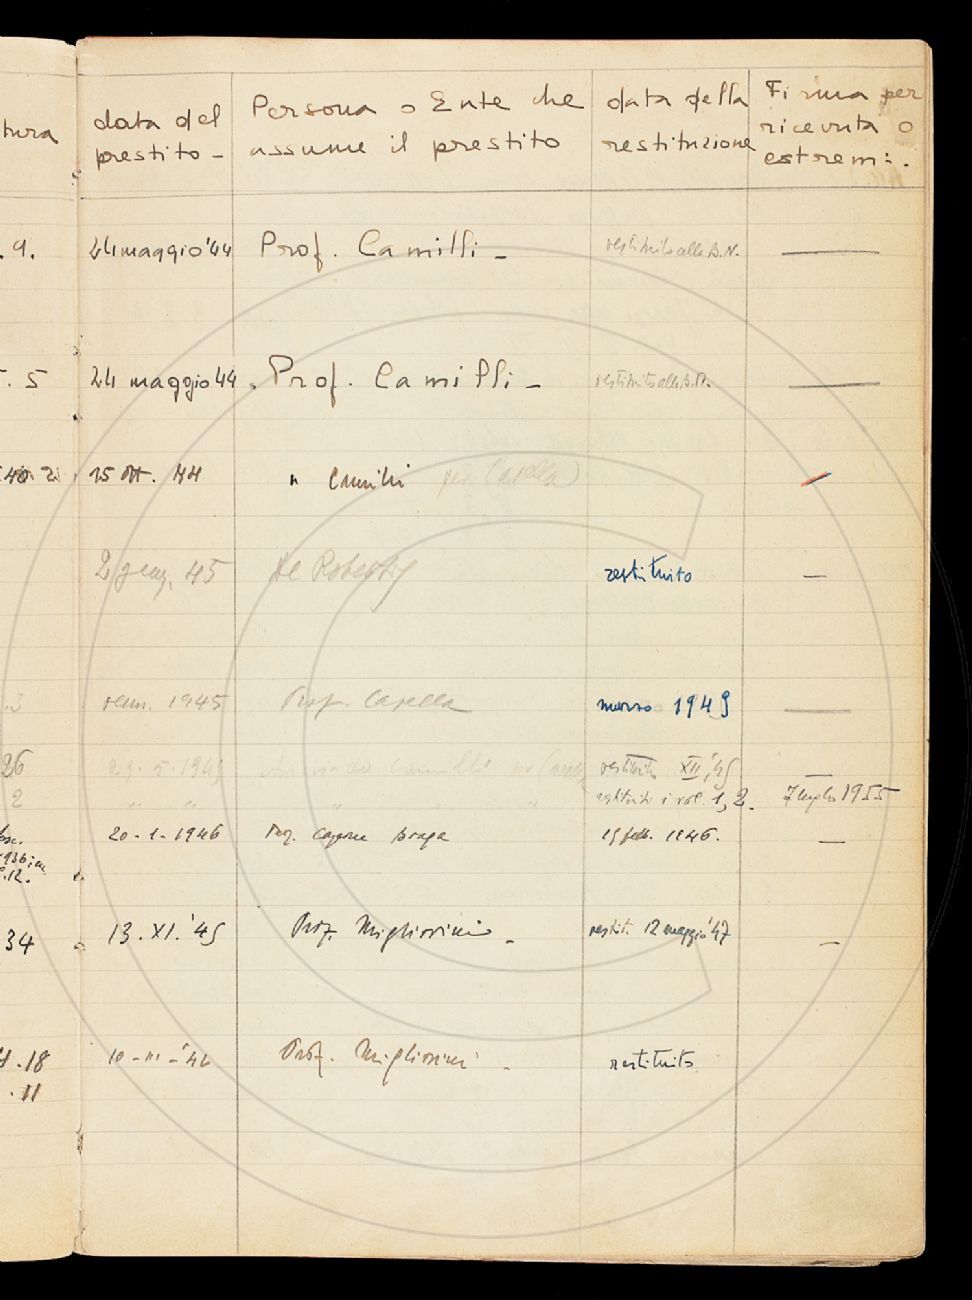 tura
data del prestito -
Persona o Ente che assume il prestito
data della restituzione
Firma per ricevuta o estremi.
. 9. 24 maggio '44 Prof. Camilli - restituito alla B.N.
. 5 24 maggio 44. Prof. Camilli - restituito alla B.N.
15 Ott. 44 " Camilli per Casella)
2 genn. 45 De Robertis restituito
.3 1945 Prof. Casella marzo 1949
26 29.5.1945 Camilli restituito XII, '45
2 " " " " restituito i vol. 1, 2. 7 luglio 1955
20-1-1946 15 febb. 1946.
1936
.12.
34 13.XI.'45 Prof. Migliorini - restit. 12 maggio '47
.18 10-III-'46 Prof. Migliorini - restituito
.11